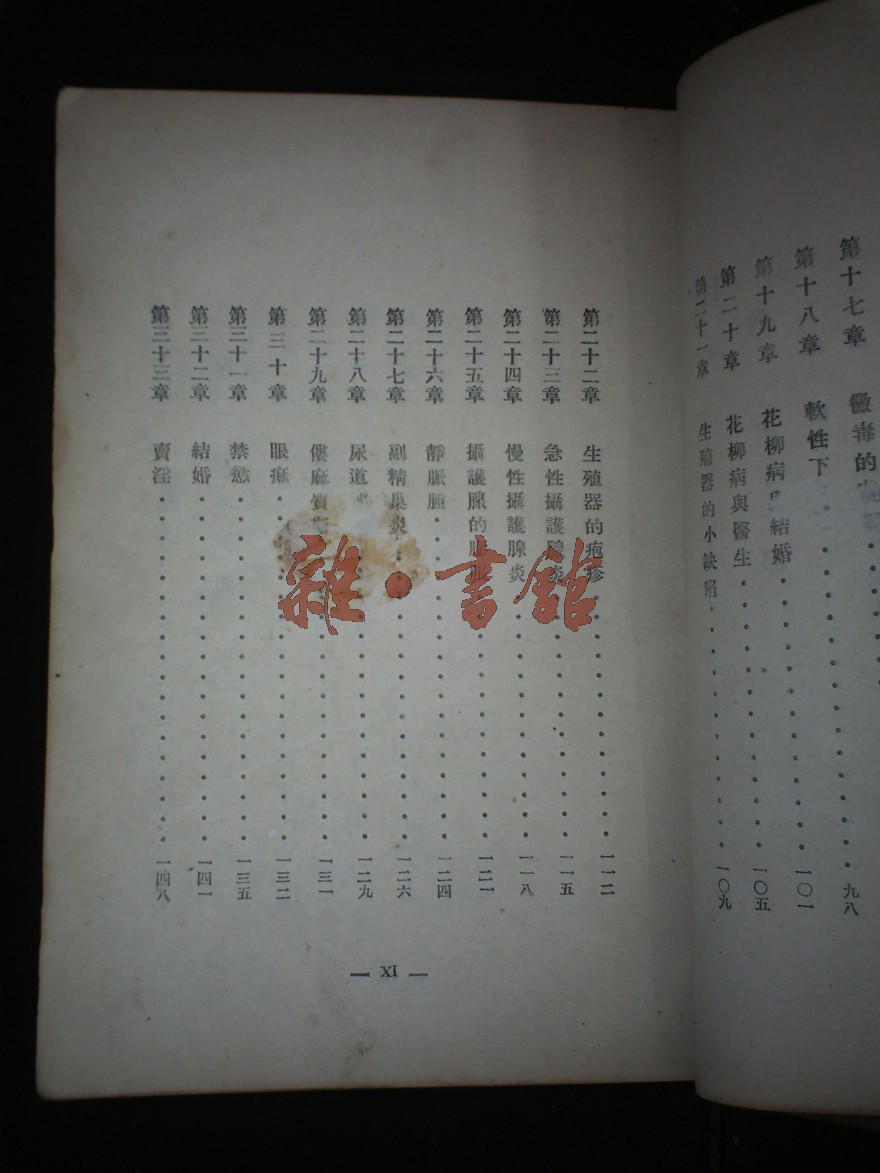 第十七章 黴毒的 九八
第十八章 軟性下 一〇一
第十九章 花柳病 結婚 一〇五
第二十章 花柳病與醫生 一〇九
第二十一章 生殖器的小缺陷
第二十二章 生殖器的疱疹 一一二
第二十三章 急性攝護腺炎 一一五
第二十四章 慢性攝護腺炎 一一八
第二十五章 攝護腺的 一二一
第二十六章 靜脈腫 一二四
第二十七章 副精巢炎 一二六
第二十八章 尿道 一二九
第二十九章 僂麻質 一三一
第三十章 眼 一三二
第三十一章 禁慾 一三五
第三十二章 結婚 一四一
第三十三章 賣淫 一四八
— XI —
雜·書館